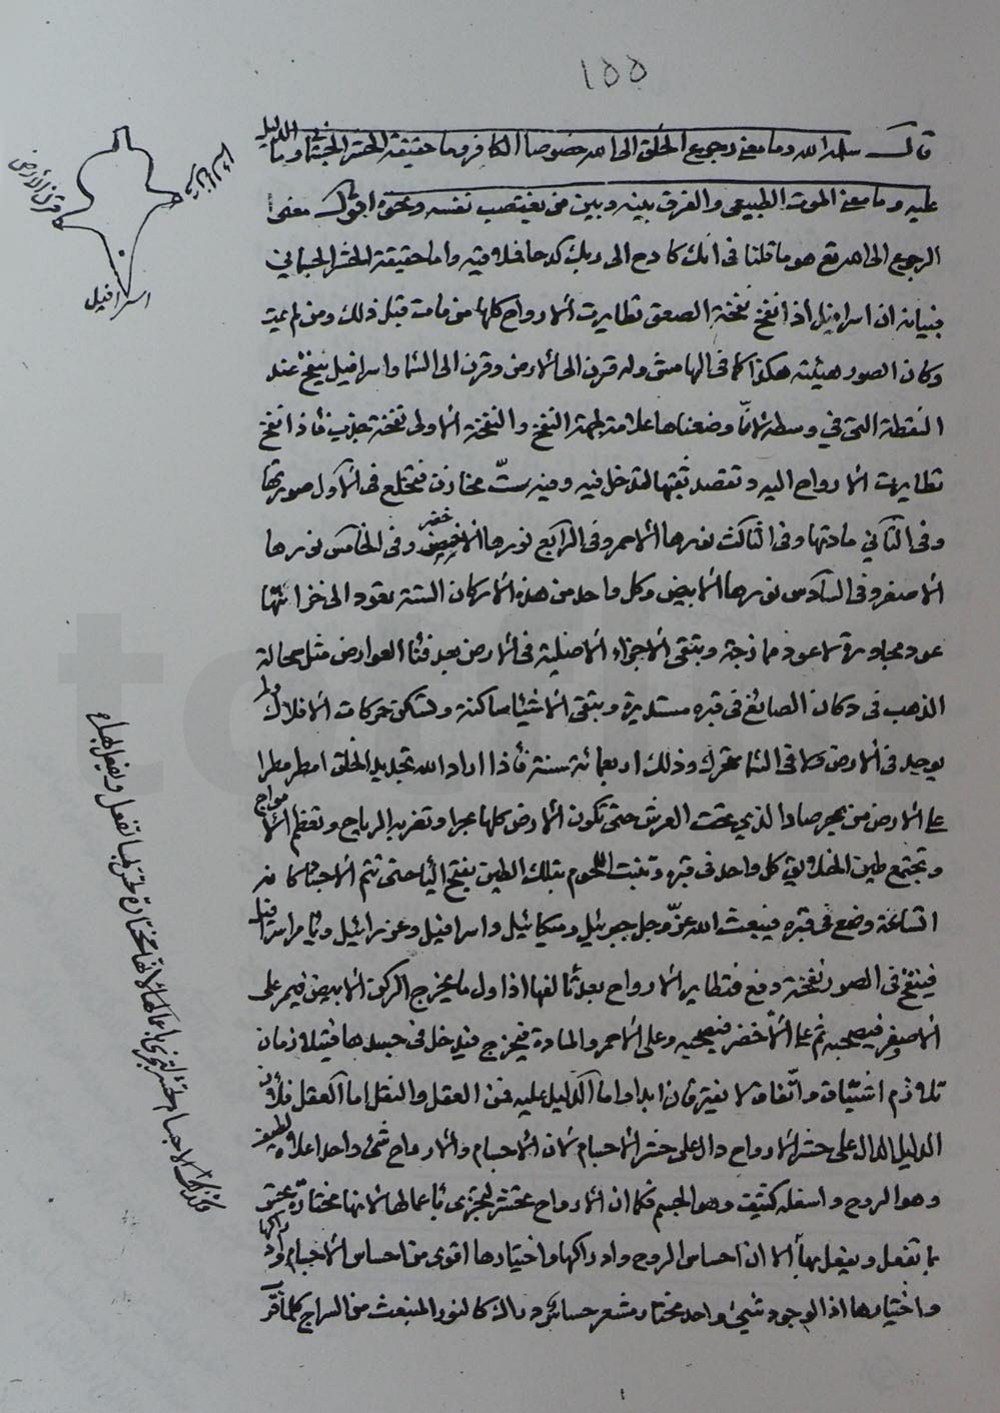 ١٥٥
قال سلمه الله وما معنى رجوع الخلق الى الله خصوصا الكافر وما حقيقة الحشر الجسماني وما الدليل
عليه وما معنى الموت الطبيعي والفرق بينه وبين من يغتصب نفسه ونحوه اقول معنى
الرجوع الى الله تع هو ما قلنا في انك كادح الى ربك كدحا فملاقيه واما حقيقة الحشر الجسماني
فبيانه ان اسرافيل اذا نفخ نفخة الصعق تطايرت الارواح كلها من مات قبل ذلك ومن لم يمت
وكان الصور هيئته هكذا كما في الهامش وله قرن الى الارض وقرن الى السماء واسرافيل ينفخ عند
النقطة التي في وسطه لانا وضعناها علامة لجهة النفخ والنفخة الاولى نفخة جذب فاذا نفخ
تطايرت الارواح اليه وتقصد ثقبها لتدخل فيه وفيه ستّ مخازن فتخلع في الاول صورتها
وفي الثاني مادتها وفي الثالث نورها الاحمر وفي الرابع نورها الاخضر وفي الخامس نورها
الاصفر وفي السادس نورها الابيض وكل واحد من هذه الاركان الستة يعود الى خزانتها
عود مجاورة لا عود ممازجة وتبقى الاجزاء الاصلية في الارض بعد فناء العوارض مثل سحالة
الذهب في دكان الصائغ في قبره مستديرة وتبقى الاشياء ساكنة وتسكن حركات الافلاك ولا
يوجد في الارض ولا في السماء متحرك وذلك اربعمائة سنة فاذا اراد الله تجديد الخلق امطر مطرا
على الارض من بحر صاد الذي تحت العرش حتى تكون الارض كلها بحرا وتضربه الرياح وتعظم الامواج
وتجتمع طين الخلائق كل واحد في قبره وتنبت اللحوم بتلك الطين بفتح الياء حتى تتم الاجساد كانه
الساعة وضع في قبره فيبعث الله عزّ وجل جبرئيل وميكائيل واسرافيل وعزرائيل ويامر اسرافيل
فينفخ في الصور نفخة دفع فتطاير الارواح بعد تالفها اذ اول ما يخرج الركن الابيض فيمر على
الاصفر فيصحبه ثم على الاخضر فيصحبه وعلى الاحمر والمادة فيخرج فيدخل في جسدها فيتلازمان
تلازم اشتياق واتفاق لا يفترقان ابدا واما الدليل عليه فمن العقل والنقل اما العقل فلان
الدليل الدال على حشر الارواح دال على حشر الاجسام لان الاجسام والارواح شيء واحد اعلاه لطيف
وهو الروح واسفله كثيف وهو الجسم فكما ان الارواح تحشر لتجزى باعمالها لانها مختارة تحس
بما تفعل ويفعل بها الا ان احساس الروح وادراكها واختيارها اقوى من احساس الاجسام وادراكها
واختيارها اذ الوجود شيء واحد مختار مشعر حساس دراك كالنور المنبعث من السراج كلما قرب
قرن الارض
اسرافيل
كذلك الاجسام تحشر لتجزى باعمالها لانها مختارة تحس بما تفعل ويفعل بها